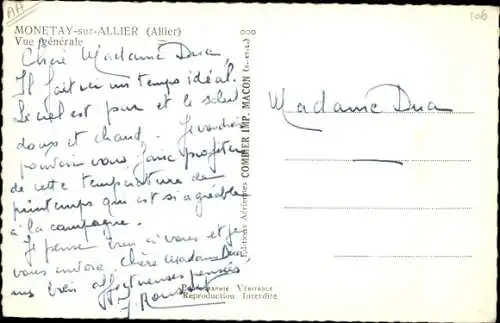 AH
106
MONETAY-sur-ALLIER (Allier)
Vue générale
Chère Madame Dua,
Il fait ici un temps idéal.
Le ciel est pur et le soleil
doux et chaud. Je voudrais
pouvoir vous faire profiter
de cette température de
printemps qui est si agréable
à la campagne.
Je pense bien à vous et je
vous envoie, chère Madame Dua,
mes bien affectueuses pensées
Editions Aériennes COMBIER IMP. MACON (S.-et-L.)
Madame Dua
PHOTOGRAPHIE VÉRITABLE
Reproduction Interdite